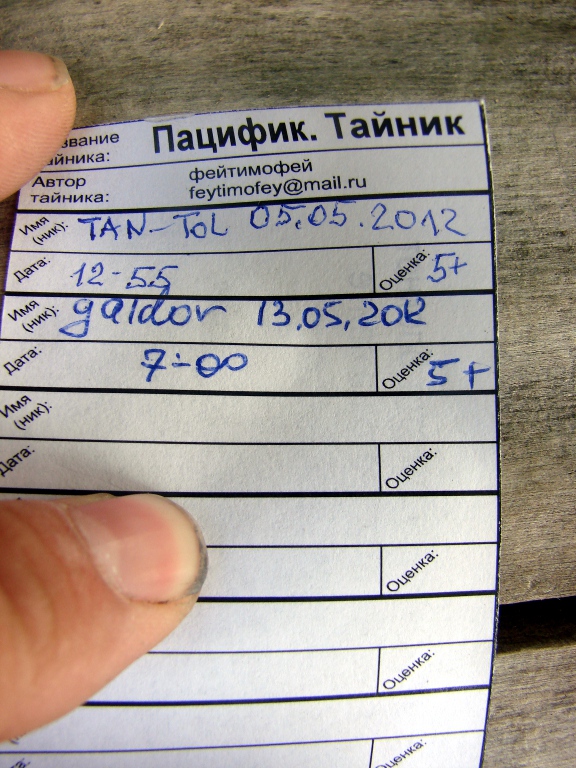 звание тайника: Пацифик. Тайник
Автор тайника: фейтимофей feytimofey@mail.ru
Имя (ник): TAN-TOL 05.05.2012
Дата: 12-55 Оценка: 5+
Имя (ник): galdor 13.05.2012
Дата: 7-00 Оценка: 5+
Имя (ник):
Дата: Оценка:
Оценка:
Оценка:
Оценка: